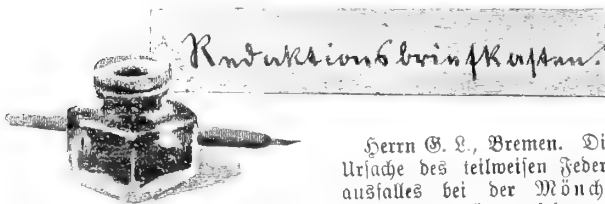 Redaktionsbriefkasten.
Herrn G. L., Bremen. Di
Ursache des teilweisen Feder
ausfalles bei der Mönch